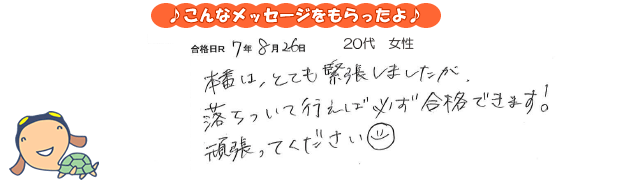 ♪こんなメッセージをもらったよ♪
合格日R 7年 8月26日 20代 女性
本番は、とても緊張しましたが、
落ちついて行えば必ず合格できます!
頑張ってください☺